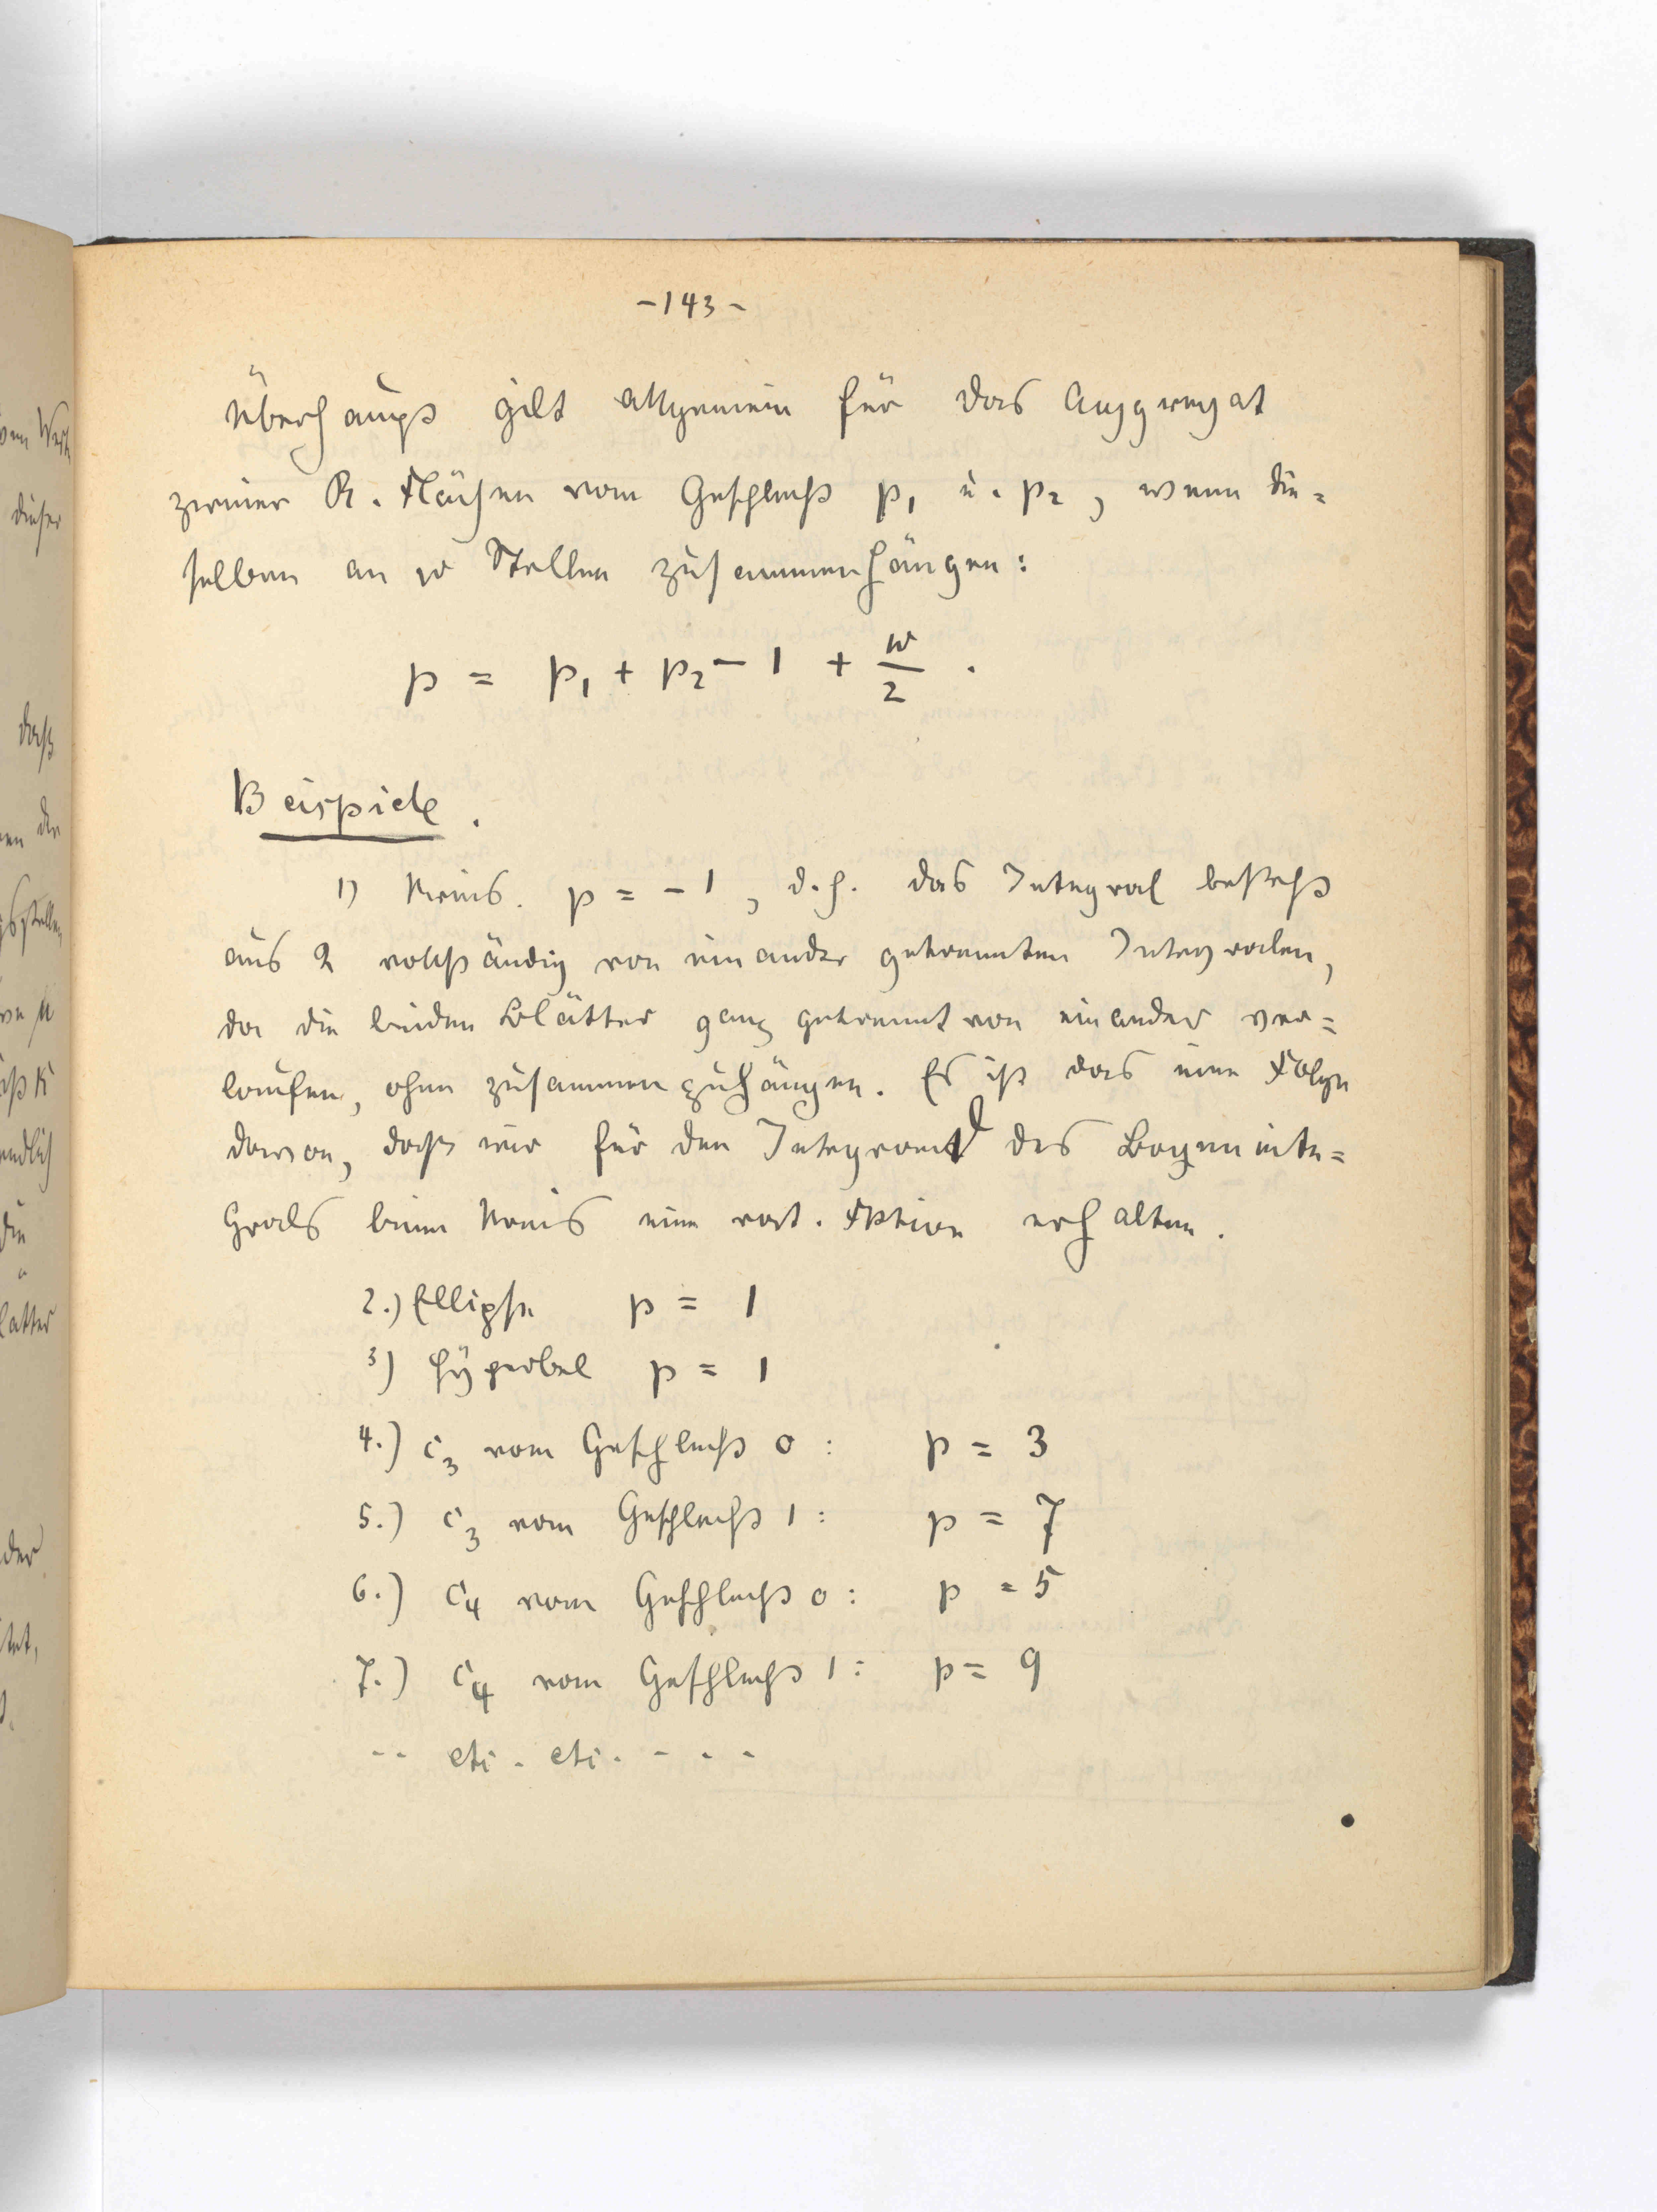 -143-
Überhaupt gilt allgemein für das Aggregat
zweier R. Flächen vom Geschlecht p₁ u. p₂, wenn die=
selben an w Stellen zusammenhängen:
p = p₁ + p₂ - 1 + w/2 .
Beispiele.
1) Kreis. p = -1, d.h. das Integral besteht
aus 2 vollständig von einander getrennten Integralen,
da die beiden Blätter ganz getrennt von einander ver=
laufen, ohne zusammenzuhängen. Es ist das eine Folge
davon, dass wir für den Integrand des Bogeninte=
grals beim Kreis eine rat. Fktion erhalten.
2.) Ellipse p = 1
3) Hyperbel p = 1
4.) C₃ vom Geschlecht 0 : p = 3
5.) C₃ vom Geschlecht 1 : p = 7
6.) C₄ vom Geschlecht 0 : p = 5
7.) C₄ vom Geschlecht 1 : p = 9
-- etc. etc. - - -
dieser
dass
der
die